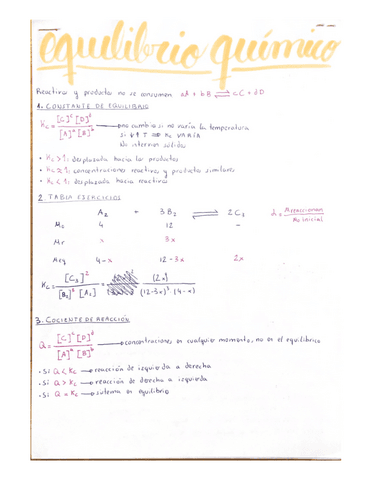 equilibrio químico
Reactivos y productos no se consumen aA + bB ⇌ cC + dD
1. CONSTANTE DE EQUILIBRIO
Kc = [C]ᶜ [D]ᵈ / [A]ᵃ [B]ᵇ → no cambia si no varía la temperatura
si ↓↑ T ⇒ Kc VARÍA
No intervien sólidos
• Kc > 1: desplazada hacia los productos
• Kc ≃ 1: concentraciones reactivos y productos similares
• Kc < 1: desplazada hacia reactivos
2. TABLA EJERCICIOS
A₂ + 3B₂ ⇌ 2C₃ α = n reaccionan / n₀ inicial
4 12 -
x 3x
Meq 4-x 12-3x 2x
Kc = [C₃]² / [B₂]³ [A₂] = (2x) / (12-3x)³ (4-x)
3. COCIENTE DE REACCIÓN
Q = [C]ᶜ [D]ᵈ / [A]ᵃ [B]ᵇ → concentraciones en cualquier momento, no en el equilibrio
• Si Q < Kc → reacción de izquierda a derecha
• Si Q > Kc → reacción de derecha a izquierda
• Si Q = Kc → sistema en equilibrio